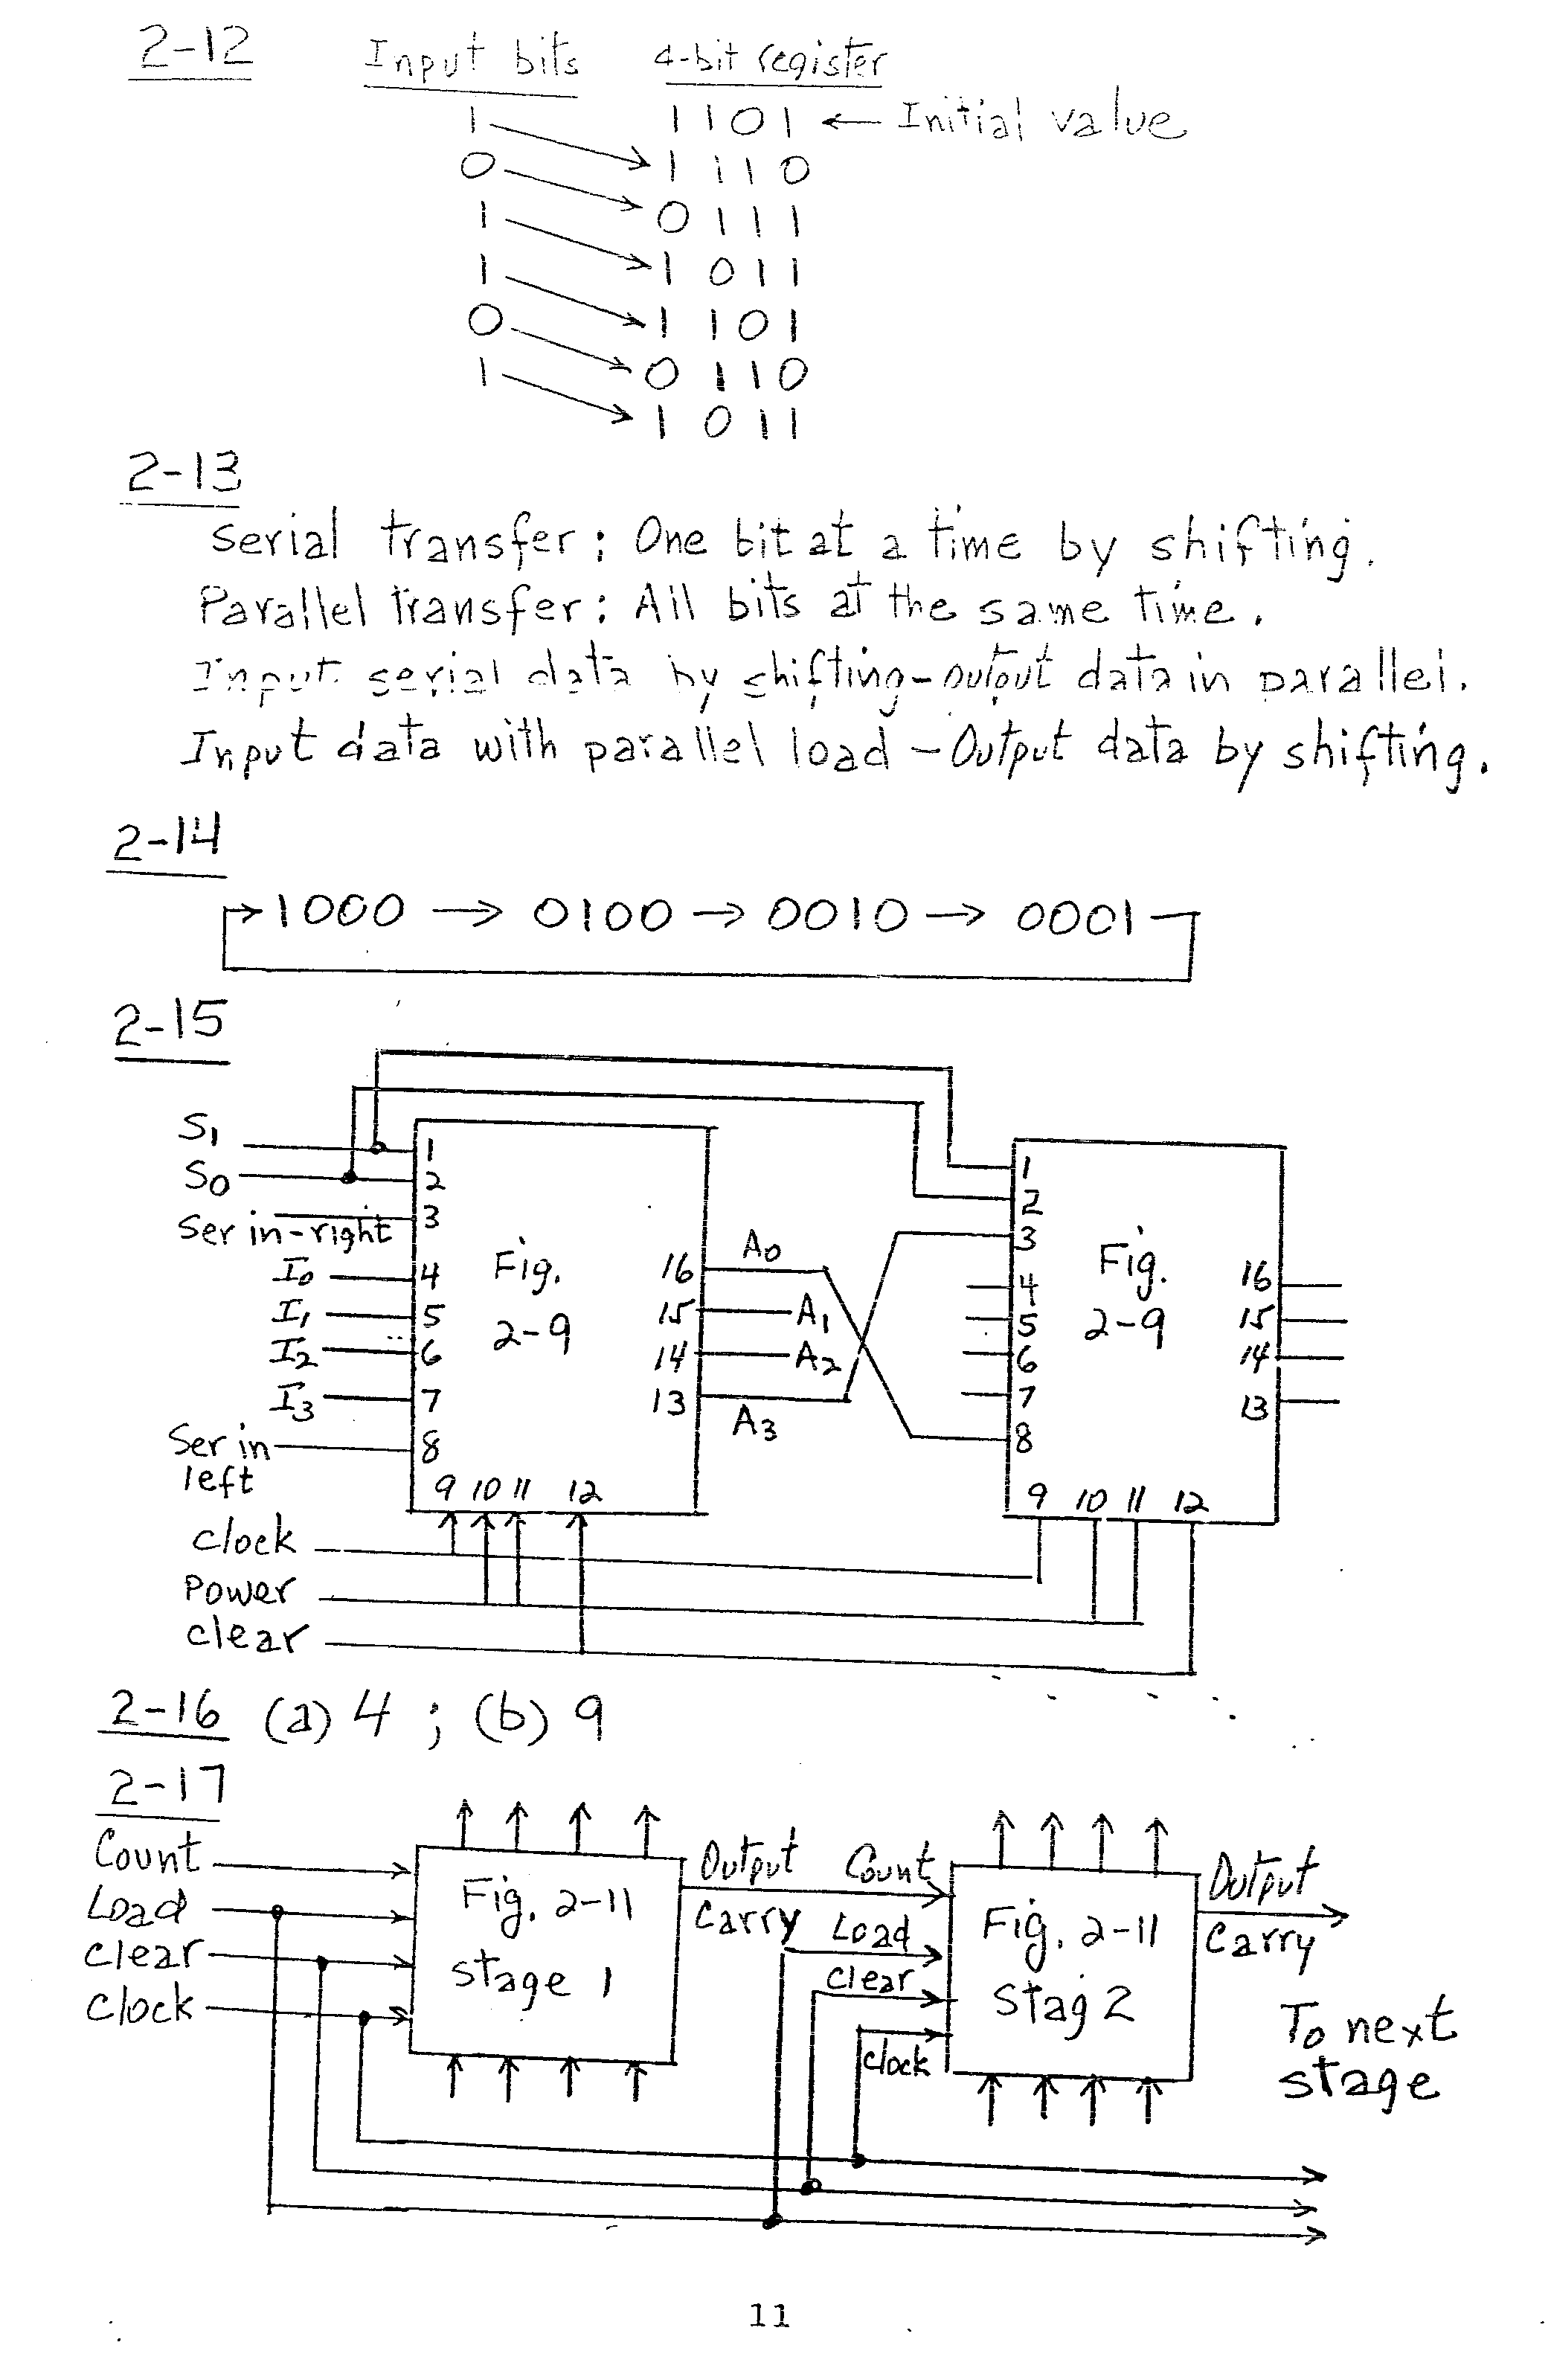 2-12 Input bits 4-bit register
1 1101 ← Initial value
0 1110
1 0111
1 1011
0 1101
1 0110
1011
2-13
Serial transfer: One bit at a time by shifting.
Parallel transfer: All bits at the same time.
Input serial data by shifting - output data in parallel.
Input data with parallel load - Output data by shifting.
2-14
→ 1000 → 0100 → 0010 → 0001
2-15
S1
S0
Ser in-right
I0
I1
I2
I3
Ser in
left
1
2
3
4
5
6
7
8
Fig.
2-9
16
15
14
13
9 10 11 12
A0
A1
A2
A3
1
2
3
4
5
6
7
8
Fig.
2-9
16
15
14
13
9 10 11 12
clock
Power
clear
2-16 (a) 4 ; (b) 9
2-17
Count
Load
clear
clock
Fig. 2-11
stage 1
Output
Carry
Count
Load
clear
clock
Fig. 2-11
Stag 2
Output
Carry
To next
stage
11